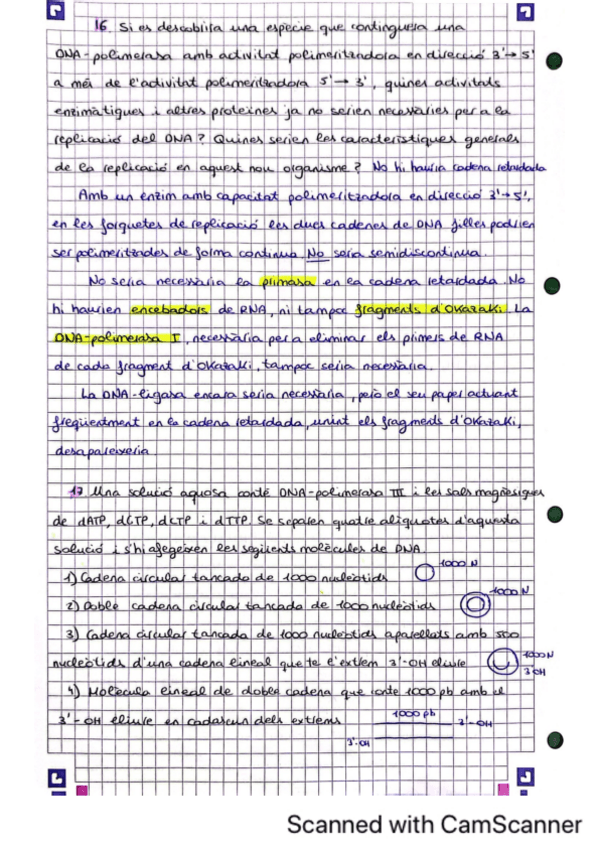 16. Si es descobrira una espècie que continguera una
DNA-polimerasa amb activitat polimeritzadora en direcció 3'→5'
a més de l'activitat polimeritzadora 5'→3', quines activitats
enzimàtiques i altres proteïnes ja no serien necessàries per a la
replicació del DNA? Quines serien les característiques generals
de la replicació en aquest nou organisme? No hi hauria cadena retardada
Amb un enzim amb capacitat polimeritzadora en direcció 3'→5',
en les forquetes de replicació les dues cadenes de DNA filles podrien
ser polimeritzades de forma continua. No seria semidiscontinua.
No seria necessària la primasa en la cadena retardada. No
hi haurien encebadors de RNA, ni tampoc fragments d'Okazaki. La
DNA-polimerasa I, necessària per a eliminar els primers de RNA
de cada fragment d'Okazaki, tampoc seria necessària.
La DNA-ligasa encara seria necessària, però el seu paper actuant
freqüentment en la cadena retardada, unint els fragments d'Okazaki,
desapareixeria.
17. Una solució aquosa conté DNA-polimerasa III i les sals magnèsiques
de dATP, dGTP, dCTP i dTTP. Se separen quatre alíquotes d'aquesta
solució i s'hi afegeixen les següents molècules de DNA.
1) Cadena circular tancada de 1000 nucleòtids 1000 N
2) Doble cadena circular tancada de 1000 nucleòtids 1000 N
3) Cadena circular tancada de 1000 nucleòtids aparellats amb 500
nucleòtids d'una cadena lineal que té l'extrem 3'-OH lliure 1000 N
3'OH
4) Molècula lineal de doble cadena que conté 1000 pb amb el
3'-OH lliure en cadascun dels extrems 1000 pb 3'-OH
3'-OH
Scanned with CamScanner